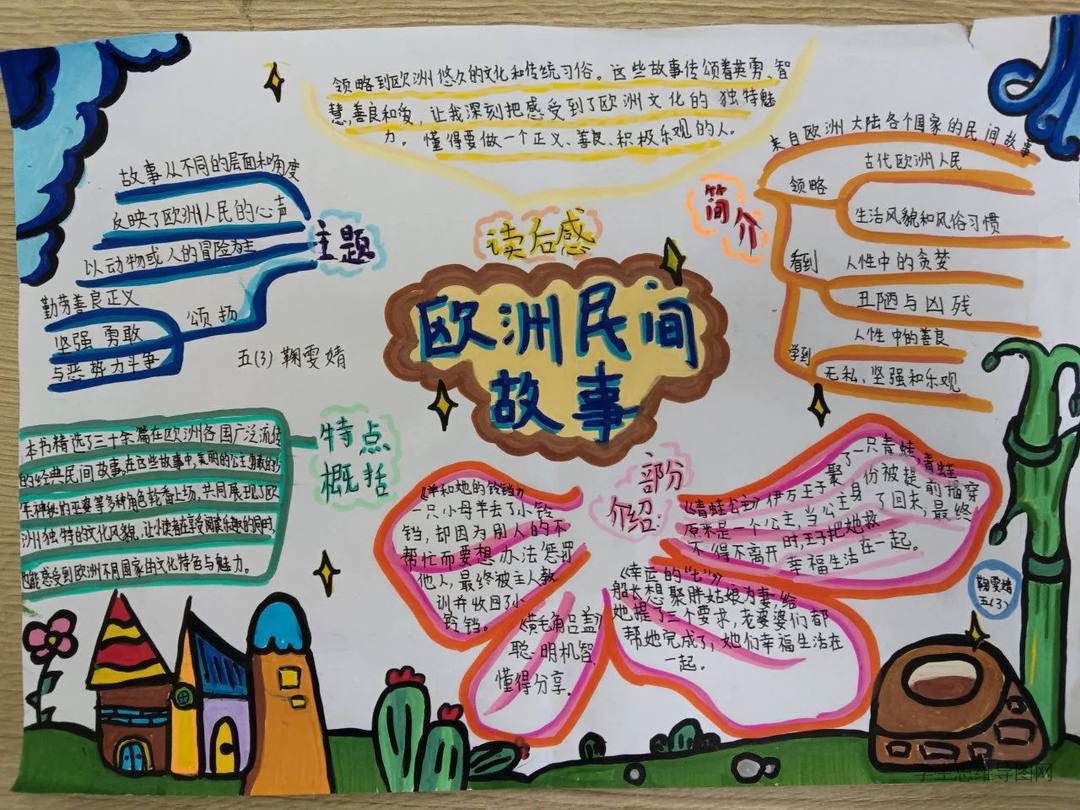 领略到欧洲悠久的文化和传统习俗。这些故事传颂着英勇、智
慧,善良和爱，让我深刻把感受到了欧洲文化的独特魅
力。懂得要做一个正义、善良、积极乐观的人。
读后感
欧洲民间
故事
主题
故事从不同的层面和角度
反映了欧洲人民的心声
以动物或人的冒险为主
颂扬
勤劳善良正义
坚强 勇敢
与恶势力斗争
五(3) 鞠雯婧
简介
来自欧洲大陆各个国家的民间故事
领略
古代欧洲人民
生活风貌和风俗习惯
看到
人性中的贪婪
丑陋与凶残
学到
人性中的善良
无私、坚强和乐观
特点
概括
本书精选了三十余篇在欧洲各国广泛流传
的经典民间故事,在这些故事中,美丽的公主,勇敢的
神秘的巫婆等多种角色轮番上场,共同展现了欧
洲独特的文化风貌,让小读者在享受阅读乐趣的同时,
也能感受到欧洲不同国家的文化特色与魅力。
部分
介绍
《羊和她的铃铛》
一只小母羊丢了小铃
铛，却因为别人的不
帮忙而要想办法惩罚
他人,最终被主人教
训并收回了小
铃铛。
《青蛙公主》伊万王子娶了一只青蛙,青蛙
原来是一个公主,当公主身份被提前揭穿
不得不离开时,王子把她救了回来,最终
幸福生活在一起。
《幸运的"七"》
船长想娶胖姑娘为妻,给
她提了三个要求,老婆婆们都
帮她完成了,她们幸福生活在
一起。
聪明机智
懂得分享.
鞠雯婧
五(3)
学生思维导图网